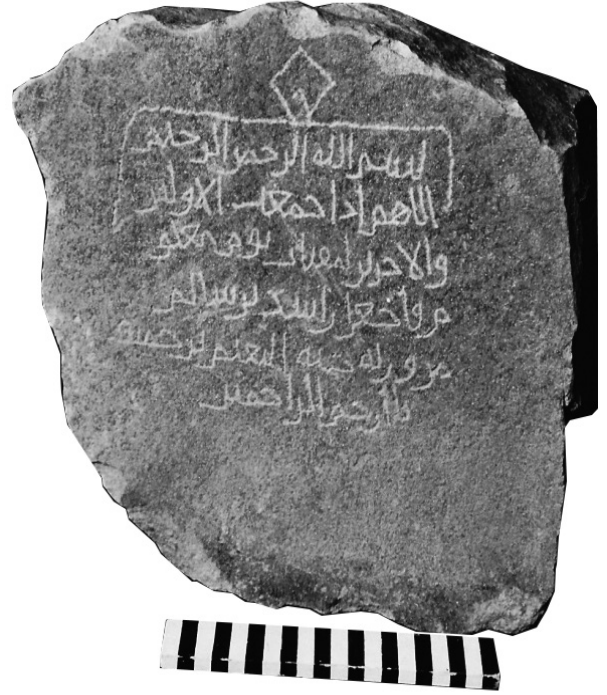 بسم الله الرحمن الرحيم
اللهم اذا جمعت الاولين
والاخرين لميقات يوم معلو
م فاجعل راشد بن سالم
من ورثه جنه النعيم برحمتك
يا ارحم الراحمين